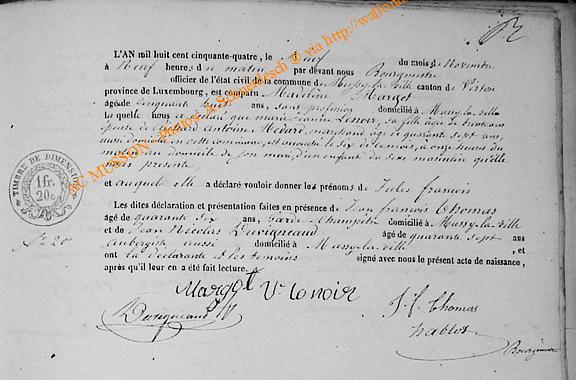 L'AN mil huit cent cinquante-quatre, le Neuf du mois de Novembre
à Neuf heures du matin par devant nous Bourgmestre
officier de l'état civil de la commune de Mussy-la-Ville canton de Virton
province de Luxembourg, est comparu Madeline Margot
âgée de cinquante huit ans, sans profession domicilié à Mussy-la-Ville
la quelle nous a déclaré que marie jeanne Lenoir, sa fille âgée de trente ans
épouse de antoine Hedard, marchand âgé de quarante sept ans,
aussi domicilié en cette commune, est accouchée le six de ce mois, à onze heures du
matin au domicile de son mari, d'un enfant du sexe masculin qu'elle
nous présente
et auquel elle a déclaré vouloir donner les prénoms de Jules françois
Les dites déclaration et présentation faites en présence de Jean françois Thomas
âgé de quarante six ans, Garde-Champêtre domicilié à Mussy-la-Ville
et de Jean Nicolas Duvigneaud âgé de quarante sept ans
aubergiste aussi domicilié à Mussy-la-Ville, et
ont la déclarante et les témoins signé avec nous le présent acte de naissance,
après qu'il leur en a été fait lecture.
Margot Ve lenoir
Duvigneaud
J. f. Thomas
Bourgmestre
TIMBRE DE DIMENSION
1 fr.
20 c.
MUSSON - Photos: A. Spiegeleseck © via http://wallonia